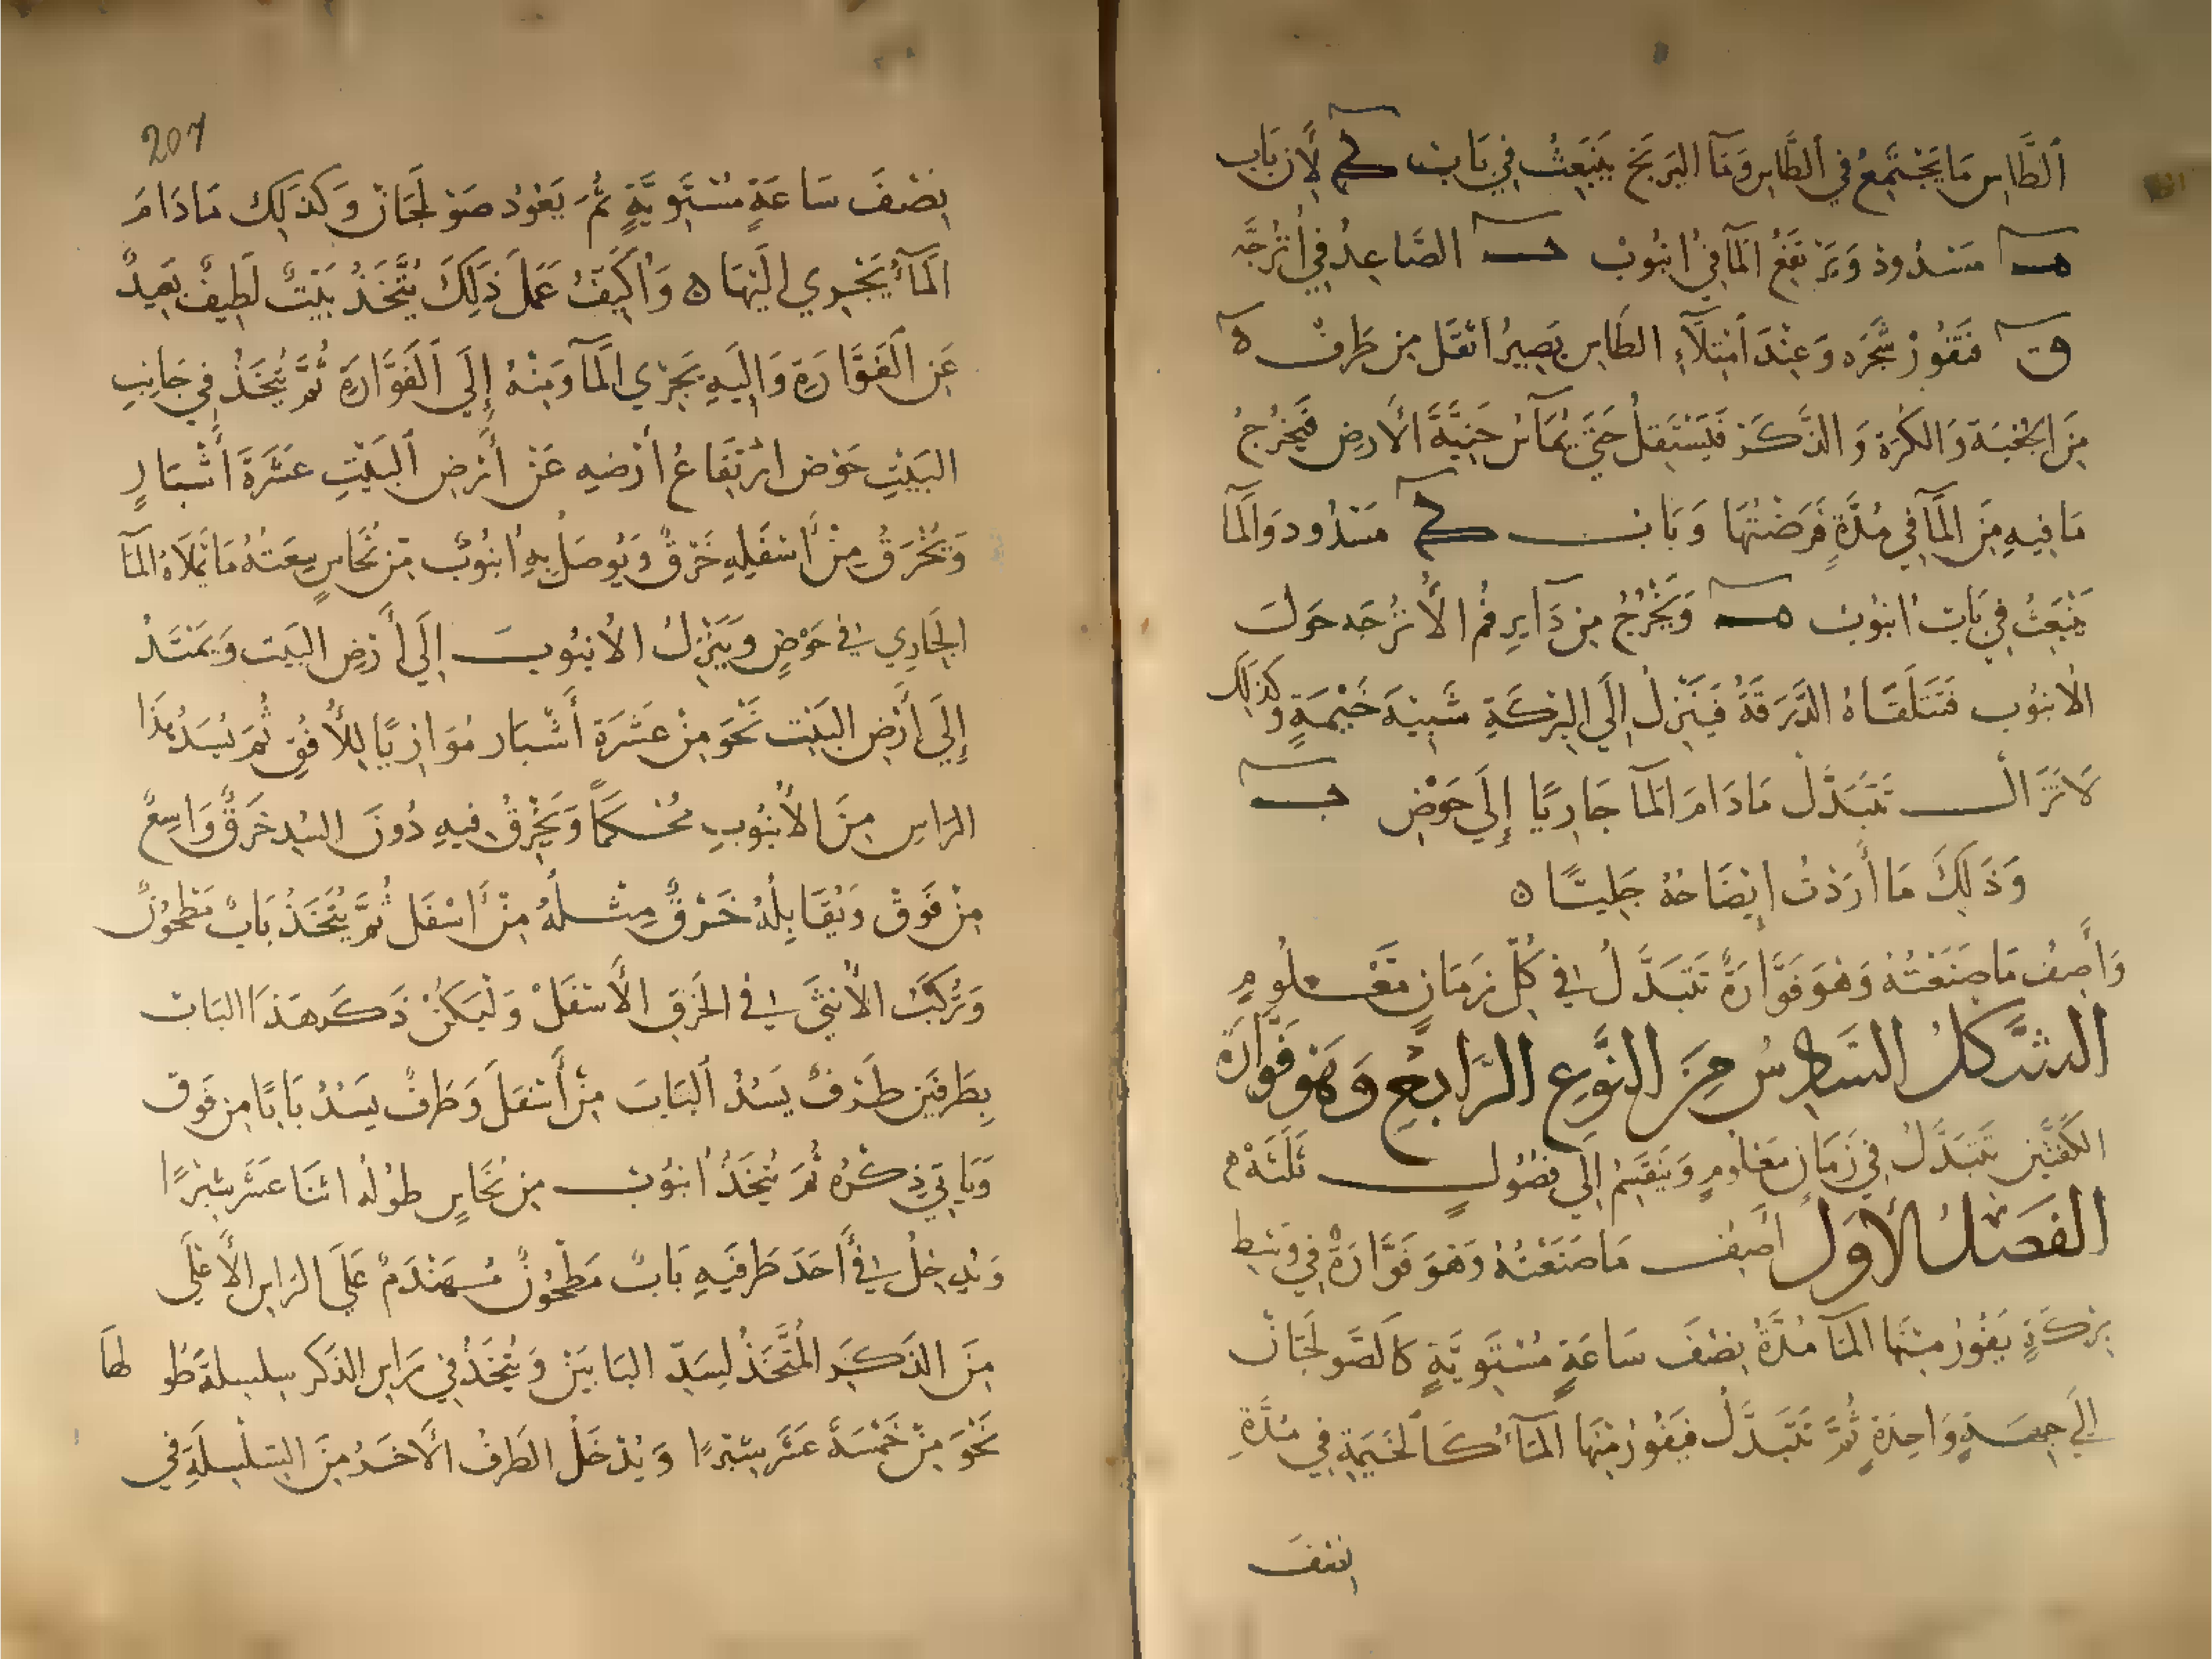 اَلطَّاسِ مَا يَجْتَمِعُ في اَلطَّاسِ وَمَآ البَرْبَخ يَنبَعِثُ في بَاب كح لأن بَاب
هـ مَسْدُودْ وَيَرْتَفِعُ المآ في انبُوبْ حـ الصَّاعِدُ في أتْرُجَّه
ق فَتَفُورْ شَجَره وَعِنْدَ امْتِلآَءِ الطَاسِ يَصِيرُ اثْقَل مِن طَرفْ ه
مِنَ الجُخنبَة وَالكُرَة وَ الذَّكَرْ فَيَسْتَقِلُ حَتَّى يُمَآسُ حَنِيَّةَ الأرض فَيَخْرجُ
مَا فِيهِ مِنَ المَآ في مُدَّةٍ فَرَضْتُهَا وَبَاب كح مَسْدُود وَالمَآ
يَنْبَعِثُ في بَاب انبُوب هـ وَيَخْرُجُ مِن دَآيِرِ فم الأترُجَه حَولَ
الأنبُوب فَتَتَلَقَّاهُ الدَّرَقَةُ فَيَنْزِلُ إلَي البِركَةِ شَبِيْهَ خَيْمَةٍ وَكَذلِك
لاَ تَزَالُ تَتَبَدَّلْ مَادَامَ المَآ جَارِيًا إلَي حَوْضِ بـ
وَذَلِكَ مَا أَرَدْتُ ايْضَاحَهُ جَلِيًّا ه
وَأَصِفُ مَا صَنَعْتُهُ وَهُوَ فَوَّارَةٌ تَتَبَدَّلُ في كُلِّ زمَانٍ مَعْلُومٍ
الشَّكلُ السَادِسُ مِنَ النَّوعِ الرَّابعِ وَهُوَ فَوَّارَة
الكفَّتَيْنِ تَتَبَدَّلُ في زَمَانٍ مَعْلُومٍ وَيَنقَسِمُ إلَي فُصُولٍ ثَلَثَةْ م
الفَصْلُ الأَوَلُ أصِفُ مَا صَنَعْتُهُ وَهُوَ فَوَّارَةٌ في وَسَطِ
بِرْكَةٍ يَفُورُ مِنْهَا المَآ مُدَّةُ نِصْفَ سَاعَةٍ مُسْتَوِيَّةٍ كَالصَّولَجَانْ
إلَي جِهَةٍ وَاحِدَةٍ ثُمَّ تَتَبَدَّلُ فَيَفُورُ مِنْهَا المَآءُ كَالخَيمَةِ في مُدَّةِ
نصف
207
نِصْفَ سَاعَةٍ مُسْتَوِيَّةٍ ثُمَ يَعُودُ صَوْلَجَانْ وَكَذَلِكَ مَادَامَ
المَآءُ يَجْرِي اليْهَا ه وَأكَيِّفُ عَمَلَ ذَلِكَ يُتَّخَذُ بَيْتٌ لَطِيفٌ بَعِيدٌ
عَنِ اَلفَوَّارَةِ وَالَيهِ يَجْرِي المَآ وَمِنْهُ إلَي اَلفَوَّارَةِ ثُمَّ يُتَّخَذُ في جَانِبِ
البَيْتِ حَوْض ارْتِفَاعُ أرْضهِ عَنْ أرْضِ اَلبَيْتِ عَشَرَةَ أشْبَارٍ
وَيُخْرَقُ مِنْ أَسْفَلِهِ خَرْقٌ وَيُوصَلُ بِهِ أنبُوبٌ مِن نُحَاسٍ سِعَتُهُ مَا يَمْلَأهُ المَآ
الجَارِي في حَوْضٍ وَيَنْزِلُ الأنبُوبَ إلَي أرْضِ البَيت وَيَمْتَدُ
إلَي أرْضِ البَيْت نَحْوَ مِنْ عَشرَة أشْبَار مُوَازِيًا لِلأُفُقِ ثُمَ يُسَدُ هَذَا
الرَاس مِنَ الأنْبُوبِ مُحْكَمًا وَيُخْرَقُ فِيهِ دُونَ السَدِ خَرْقٌ وَاسِعٌ
مِنْ فَوقْ وَيُقَابِلُهُ خَرْقٌ مِثْلُهُ مِنْ أَسْفَل ثُمَّ يُتَّخَذُ بَابٌ مَطحُونٌ
وَتُرَكَّبُ الأنثَى في الخَرْقِ الأَسْفَلْ وَليَكُنْ ذَكَر هَذَا البَاب
بِطَرفَين طَرفٌ يَسُدُ اَلبَابَ مِنْ أَسْفَلَ وَطَرفٌ يَسُدُ بَابًا مِن فَوق
وَيَاتي ذِكْرُهُ ثُمَ يُتَّخَذُ أنبُوب مِن نُحَاسٍ طُولُه اثنَا عَشَر شِبْرًا
وَيُدخلُ في أَحَدَ طَرفَيهِ بَابٌ مَطحُونٌ مُهَنْدَمٌ عَلَى الرَاس الأَعْلَى
مِنَ الذَكَرِ المُتَّخَذُ لِسَدِّ البَابَيْنِ وَيُتَّخَذُ في رَاس الذكَر سِلسِلة طُو لهَا
نَحْوَ مِنْ خَمْسَةَ عَشَر شِبْرًا وَيُدْخَلُ الطَرفُ الأَخَرُ مِنَ السِلْسِلَةِ في